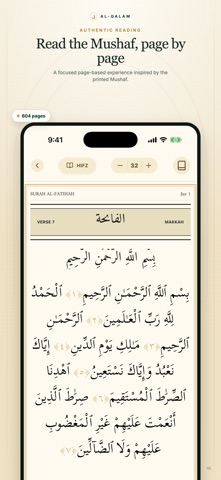 AL-QALAM
AUTHENTIC READING
Read the Mushaf, page by
page
A focused page-based experience inspired by the
printed Mushaf.
604 pages
9:41
HIFZ
32
SURAH AL-FATIHAH
Juz 1
VERSE 7
الفاتحة
MAKKAH
بِسْمِ اللَّهِ الرَّحْمَٰنِ الرَّحِيمِ
بِسْمِ ٱللَّهِ ٱلرَّحْمَـٰنِ ٱلرَّحِيمِ ﴿١﴾ ٱلْحَمْدُ
لِلَّهِ رَبِّ ٱلْعَـٰلَمِينَ ﴿٢﴾ ٱلرَّحْمَـٰنِ
ٱلرَّحِيمِ ﴿٣﴾ مَـٰلِكِ يَوْمِ ٱلدِّينِ ﴿٤﴾ إِيَّاكَ
نَعْبُدُ وَإِيَّاكَ نَسْتَعِينُ ﴿٥﴾ ٱهْدِنَا
ٱلصِّرَٰطَ ٱلْمُسْتَقِيمَ ﴿٦﴾ صِرَٰطَ ٱلَّذِينَ
أَنْعَمْتَ عَلَيْهِمْ غَيْرِ ٱلْمَغْضُوبِ
عَلَيْهِمْ وَلَا ٱلضَّآلِّينَ ﴿٧﴾